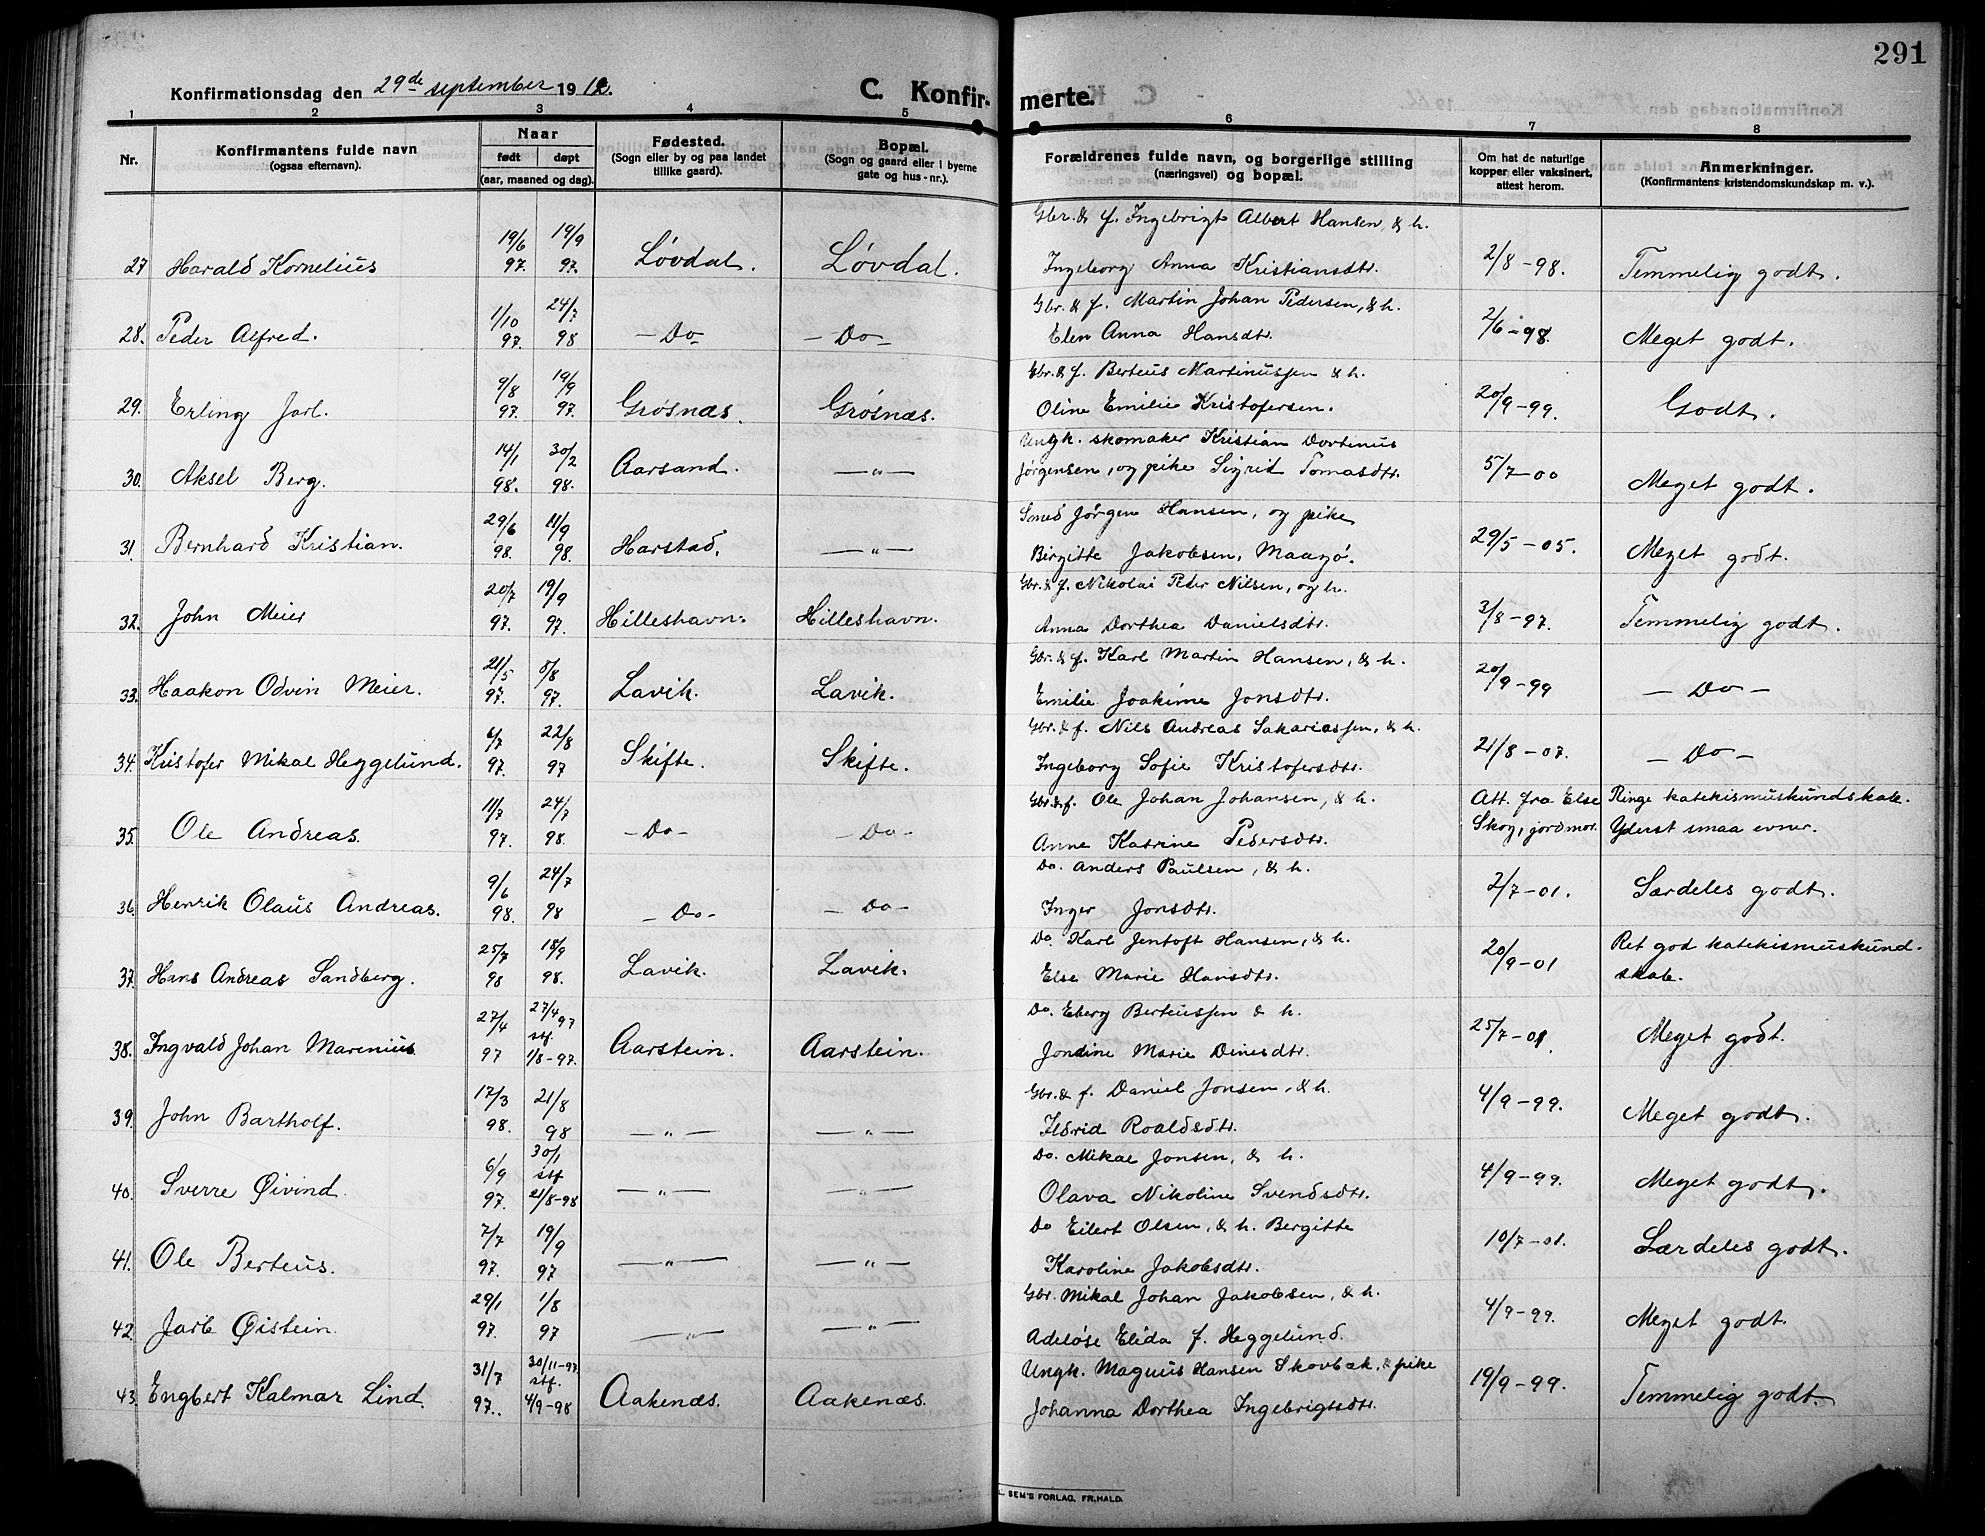 291
Konfirmationsdag den 29de september 1912.
C. Konfirmerte.
1 2 3 4 5 6 7 8
Nr.
Konfirmantens fulde navn
(ogsaa efternavn).
Naar
født
døpt
(aar, maaned og dag).
Fødested.
(Sogn eller by og paa landet
tillike gaard).
Bopæl.
(Sogn og gaard eller i byerne
gate og hus-nr.).
Forældrenes fulde navn, og borgerlige stilling
(næringsvei) og bopæl.
Om hat de naturlige
kopper eller vaksinert,
attest herom.
Anmerkninger.
(Konfirmantens kristendomskundskap m. v.).
Gbr. & f. Ingebrigt Albert Hansen, & h.
27 Harald Kornelius 19/6 97. 19/9 97. Løvdal. Løvdal. Ingeborg Anna Kristiansdtr. 2/8-98. Temmelig godt.
Gbr. & f. Martin Johan Pedersen, & h.
28. Peder Alfred. 1/10 97. 24/7 98 -Do- -Do- Elen Anna Hansdtr. 2/6-98. Meget godt.
Gbr. & f. Berteus Martinussen & h.
29. Erling Jarl. 9/8 97. 19/9 97. Grøsnæs. Grøsnæs. Oline Emilie Kristofersen. 20/9-99. Godt.
Ungk. skomaker Kristian Dortinus
30. Aksel Berg. 14/1 98. 30/2 98. Aarsand. —"— Jørgensen, og pike Sigrid Tomasdtr. 5/7-00 Meget godt.
Smed Jørgen Hansen, og pike
31. Bernhard Kristian. 29/6 98. 11/9 98. Harstad. —"— Birgitte Jakobsen, Maagø. 29/5-05. Meget godt.
Gbr. & f. Nikolai Peder Nilsen, og h.
32. John Meier 20/7 97. 19/9 97. Hilleshavn. Hilleshavn. Anna Dorthea Danielsdtr. 3/8-97. Temmelig godt.
Gbr. & f. Karl Martin Hansen, & h.
33. Haakon Odvin Meier. 21/5 97. 8/8 97. Lavik. Lavik. Emilie Joakime Jonsdtr. 20/9-99 -Do-
Gbr. & f. Nils Andreas Sakariassen, & h.
34. Kristofer Mikal Heggelund. 6/7 97. 22/8 97 Skifte. Skifte. Ingeborg Sofie Kristofersdtr. 21/8-07. -Do-
Gbr. & f. Ole Johan Johansen, & h. Att. fra Else Ringe katekismuskundskab.
35. Ole Andreas. 11/7 97. 24/7 98. -Do- -Do- Anne Katrine Pedersdtr. Skog, jordmor. Yderst smaa evner.
Do. Anders Paulsen, & h.
36. Henrik Olaus Andreas. 9/6 98. 24/7 98 -Do- -Do- Inger Jonsdtr. 2/7-01. Særdeles godt.
Do. Karl Jentoft Hansen, & h. Ret god katekismuskund-
37. Hans Andreas Sandberg. 25/7 98 18/9 98. Lavik. Lavik. Else Marie Hansdtr. 20/9-01 skab.
Do. Eberg Berteussen & h.
38. Ingvald Johan Marenius 27/4 97 27/4 97 stf. 1/8-97. Aarstein. Aarstein. Jondine Marie Dinesdtr. 25/7-01. Meget godt.
Gbr. & f. Daniel Jonsen, & h.
39. John Bartholf. 17/3 98. 21/8 98 —"— —"— Ildrid Roaldsdtr. 4/9-99. Meget godt.
Do. Mikal Jonsen, & h.
40. Sverre Øivind. 6/9 97. 30/1 stf 21/8-98 —"— —"— Olava Nikoline Svendsdtr. 4/9-99. Meget godt.
Do Eilert Olsen, & h. Bergitte
41. Ole Berteus. 7/7 97. 19/9 97 —"— —"— Karoline Jakobsdtr. 10/7-01. Særdeles godt.
Gbr. Mikal Johan Jakobsen, & h.
42. Jarl Øistein. 29/1 97. 1/8 97 —"— —"— Adeløse Elida f. Heggelund. 4/9-99. Meget godt.
Ungk. Magnus Hansen Skovbak, & pike
43. Engbert Kalmar Lind 31/7 97. 30/11-97 stf. 4/9-98 Aakenæs. Aakenæs. Johanna Dorthea Ingebrigtsdtr. 19/9-99. Temmelig godt.
SEM'S FORLAG, FR.HALD.